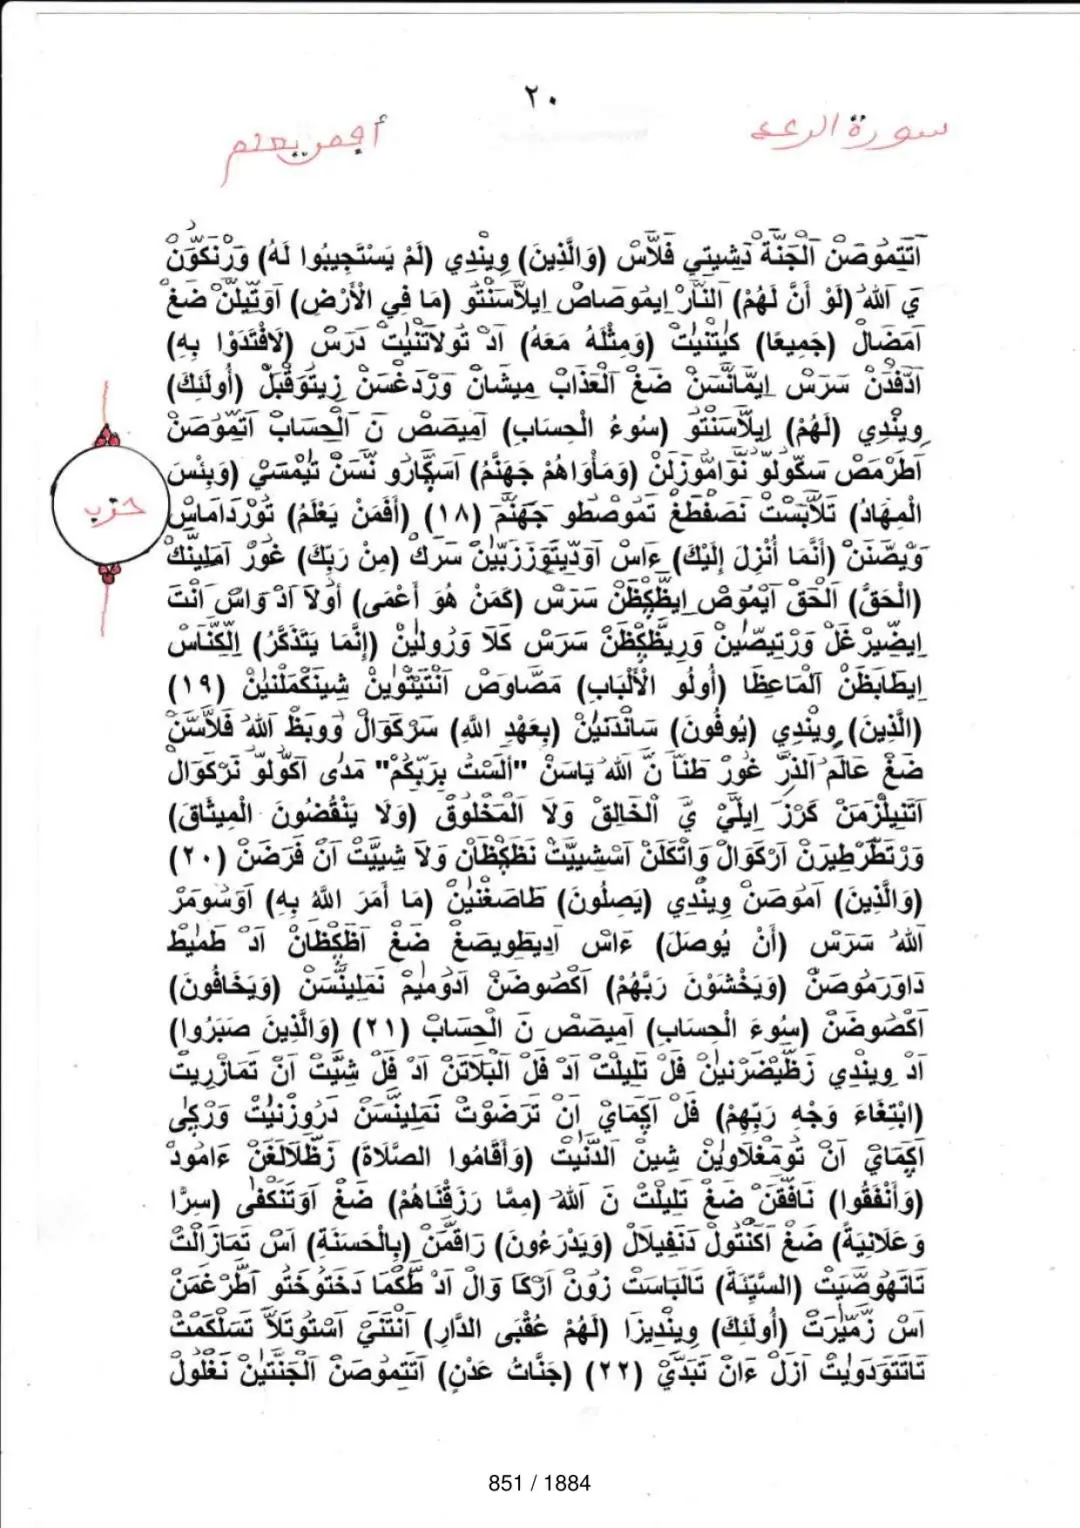 ٢٠
سورة الرعد
أفمن يعلم
اَتَّتِمُوصَنْ اَلْجَنَّةْ دَشِيتِي فَلَّاسْ (وَالَّذِينَ) وِينْدِي (لَمْ يَسْتَجِيبُوا لَهُ) وَرْنَكوَّنْ
يَ اَللهْ (لَوْ أَنَّ لَهُمْ) اَلنَّارْ اِيمُوصَاصْ اِيلَّاسَنْتُو (مَا فِي الْأَرْضِ) اَوَتِّيلَنْ ضَغْ
اَمَضَالْ (جَمِيعًا) كَيْتَنَيْتْ (وَمِثْلَهُ مَعَهُ) اَدْ تُولَاتَنَيْتْ دَرَسْ (لَافْتَدَوْا بِهِ)
اَدَّفْدَنْ سَرَسْ اِيمَانَّسَنْ ضَغْ اَلْعَذَابْ مِيشَانْ وَرْدَغْسَنْ زِيتَوَقْبَلْ (أُولَئِكَ)
وِينْدِي (لَهُمْ) اِيلَّاسَنْتُو (سُوءُ الْحِسَابِ) اَمِيصَصْ نَ اَلْحِسَابْ اَتِّمُوصَنْ
اَطَرْمَصْ سَكُولُو نَوَامُوزَلَنْ (وَمَأْوَاهُمْ جَهَنَّمُ) اَسِكَّارُو نَسَنْ تَيْمَسَيْ (وَبِئْسَ
الْمِهَادُ) تَلَّابَسْتْ نَصَفْطَغْ تَمُوصْطُو جَهَنَّمَ (١٨) (أَفَمَنْ يَعْلَمُ) تَوْرَدَامَاسْ
وَيْصَنَنْ (أَنَّمَا أُنْزِلَ إِلَيْكَ) ءَاسْ اَوَدِّيتَوَزَزَبِّيَنْ سَرَكْ (مِنْ رَبِّكَ) غُورْ اَمَلِينَّكْ
(الْحَقُّ) اَلْحَقْ اَيْمُوصْ اِيظَّكَظَنْ سَرَسْ (كَمَنْ هُوَ أَعْمَى) أُولَا اَدْ وَاسْ اَنْتَ
اِيضَيْرْغَلْ وَرْتِيصَّيَنْ وَرِيظَّكَظَنْ سَرَسْ كَلَا وَرُولِيَنْ (إِنَّمَا يَتَذَكَّرُ) اِلْكَنَاسْ
اِيطَابَظَنْ اَلْمَاعِظَا (أُولُو الْأَلْبَابِ) مَصَّاوَصْ اَنْتَيْتَوِينْ شِينَكْمَلْنَيْنْ (١٩)
(الَّذِينَ) وِينْدِي (يُوفُونَ) سَانْدَنَيْنْ (بِعَهْدِ اللَّهِ) سَرْكَوَالْ وُوبَظْ اَللهْ فَلَّاسَنْ
ضَغْ عَالَمْ اَلذَّرِّ غُورْ طَنَّا نَّ اَللهْ يَاسَنْ "أَلَسْتُ بِرَبِّكُمْ" مَدَى اَكُولُو نَرْكَوَالْ
اَتَّنِيلْزَمَنْ كَرْزَ اِيلَيْ يَ اَلْخَالِقْ وَلَا اَلْمَخْلُوقْ (وَلَا يَنْقُضُونَ الْمِيثَاقَ)
وَرْتَطَّرْطِيرَنْ اَرْكَوَالْ وَاتْكَلَنْ اَسْشِيَيَّتْ نَظَكِظَانْ وَلَا شِيَيَّتْ اَنْ فَرَضَنْ (٢٠)
(وَالَّذِينَ) اَمُوصَنْ وِينْدِي (يَصِلُونَ) طَاصَغْنَيْنْ (مَا أَمَرَ اللَّهُ بِهِ) اَوَشُومَرْ
اَللهْ سَرَسْ (أَنْ يُوصَلَ) ءَاسْ اَدِيطَويصَغْ ضَغْ اَظَكِظَانْ اَدْ طَمَيْطْ
دَاوَرَمُوصَنْ (وَيَخْشَوْنَ رَبَّهُمْ) اَكْصُوضَنْ اَدُومَيْمْ نَمَلِينَّسَنْ (وَيَخَافُونَ)
اَكْصُوضَنْ (سُوءَ الْحِسَابِ) اَمِيصَصْ نَ اَلْحِسَابْ (٢١) (وَالَّذِينَ صَبَرُوا)
اَدْ وِينْدِي زَظَّيْضَرْنَيْنْ فَلْ تَلِيلْتْ اَدْ فَلْ اَلْبَلَاتَنْ اَدْ فَلْ شِيَّتْ اَنْ تَمَازْرِيتْ
(ابْتِغَاءَ وَجْهِ رَبِّهِمْ) فَلْ اَكِمَايْ اَنْ تَرَضَوْتْ نَمَلِينَّسَنْ دَرُوزَنَيْتْ وَرْكَى
اَكِمَايْ اَنْ تُومَغْلَاوِينْ شِينْ اَلدُّنْيْتْ (وَأَقَامُوا الصَّلَاةَ) زَظَّلَالَغَنْ ءَامُودْ
(وَأَنْفَقُوا) نَافَّقَنْ ضَغْ تَلِيلْتْ نَ اَللهْ (مِمَّا رَزَقْنَاهُمْ) ضَغْ اَوَتَنَكْفَى (سِرًّا
وَعَلَانِيَةً) ضَغْ اَكَنْتُولْ دَنْفِيلَالْ (وَيَدْرَءُونَ) رَاقْمَنْ (بِالْحَسَنَةِ) اَسْ تَمَازَالْتْ
تَاتَهُوصَيَتْ (السَّيِّئَةَ) تَالْبَاسَتْ زُونْ اَرْكَا وَالْ اَدْ طَّكْمَا دَخْتُوخْتُو اَطَّرْغَمَنْ
اَسْ زَمِّيرَتْ (أُولَئِكَ) وِينْدِيزَا (لَهُمْ عُقْبَى الدَّارِ) اَنْتَنَيْ اَسْتُوتَلَّا تَسَلْكَمْتْ
تَاتَتَوَدوِيَتْ اَزَلْ ءَانْ تَبَدَّيْ (٢٢) (جَنَّاتُ عَدْنٍ) اَتَتِمُوصَنْ اَلْجَنَّتَيْنْ نَغْلُولْ
حزب
851 / 1884